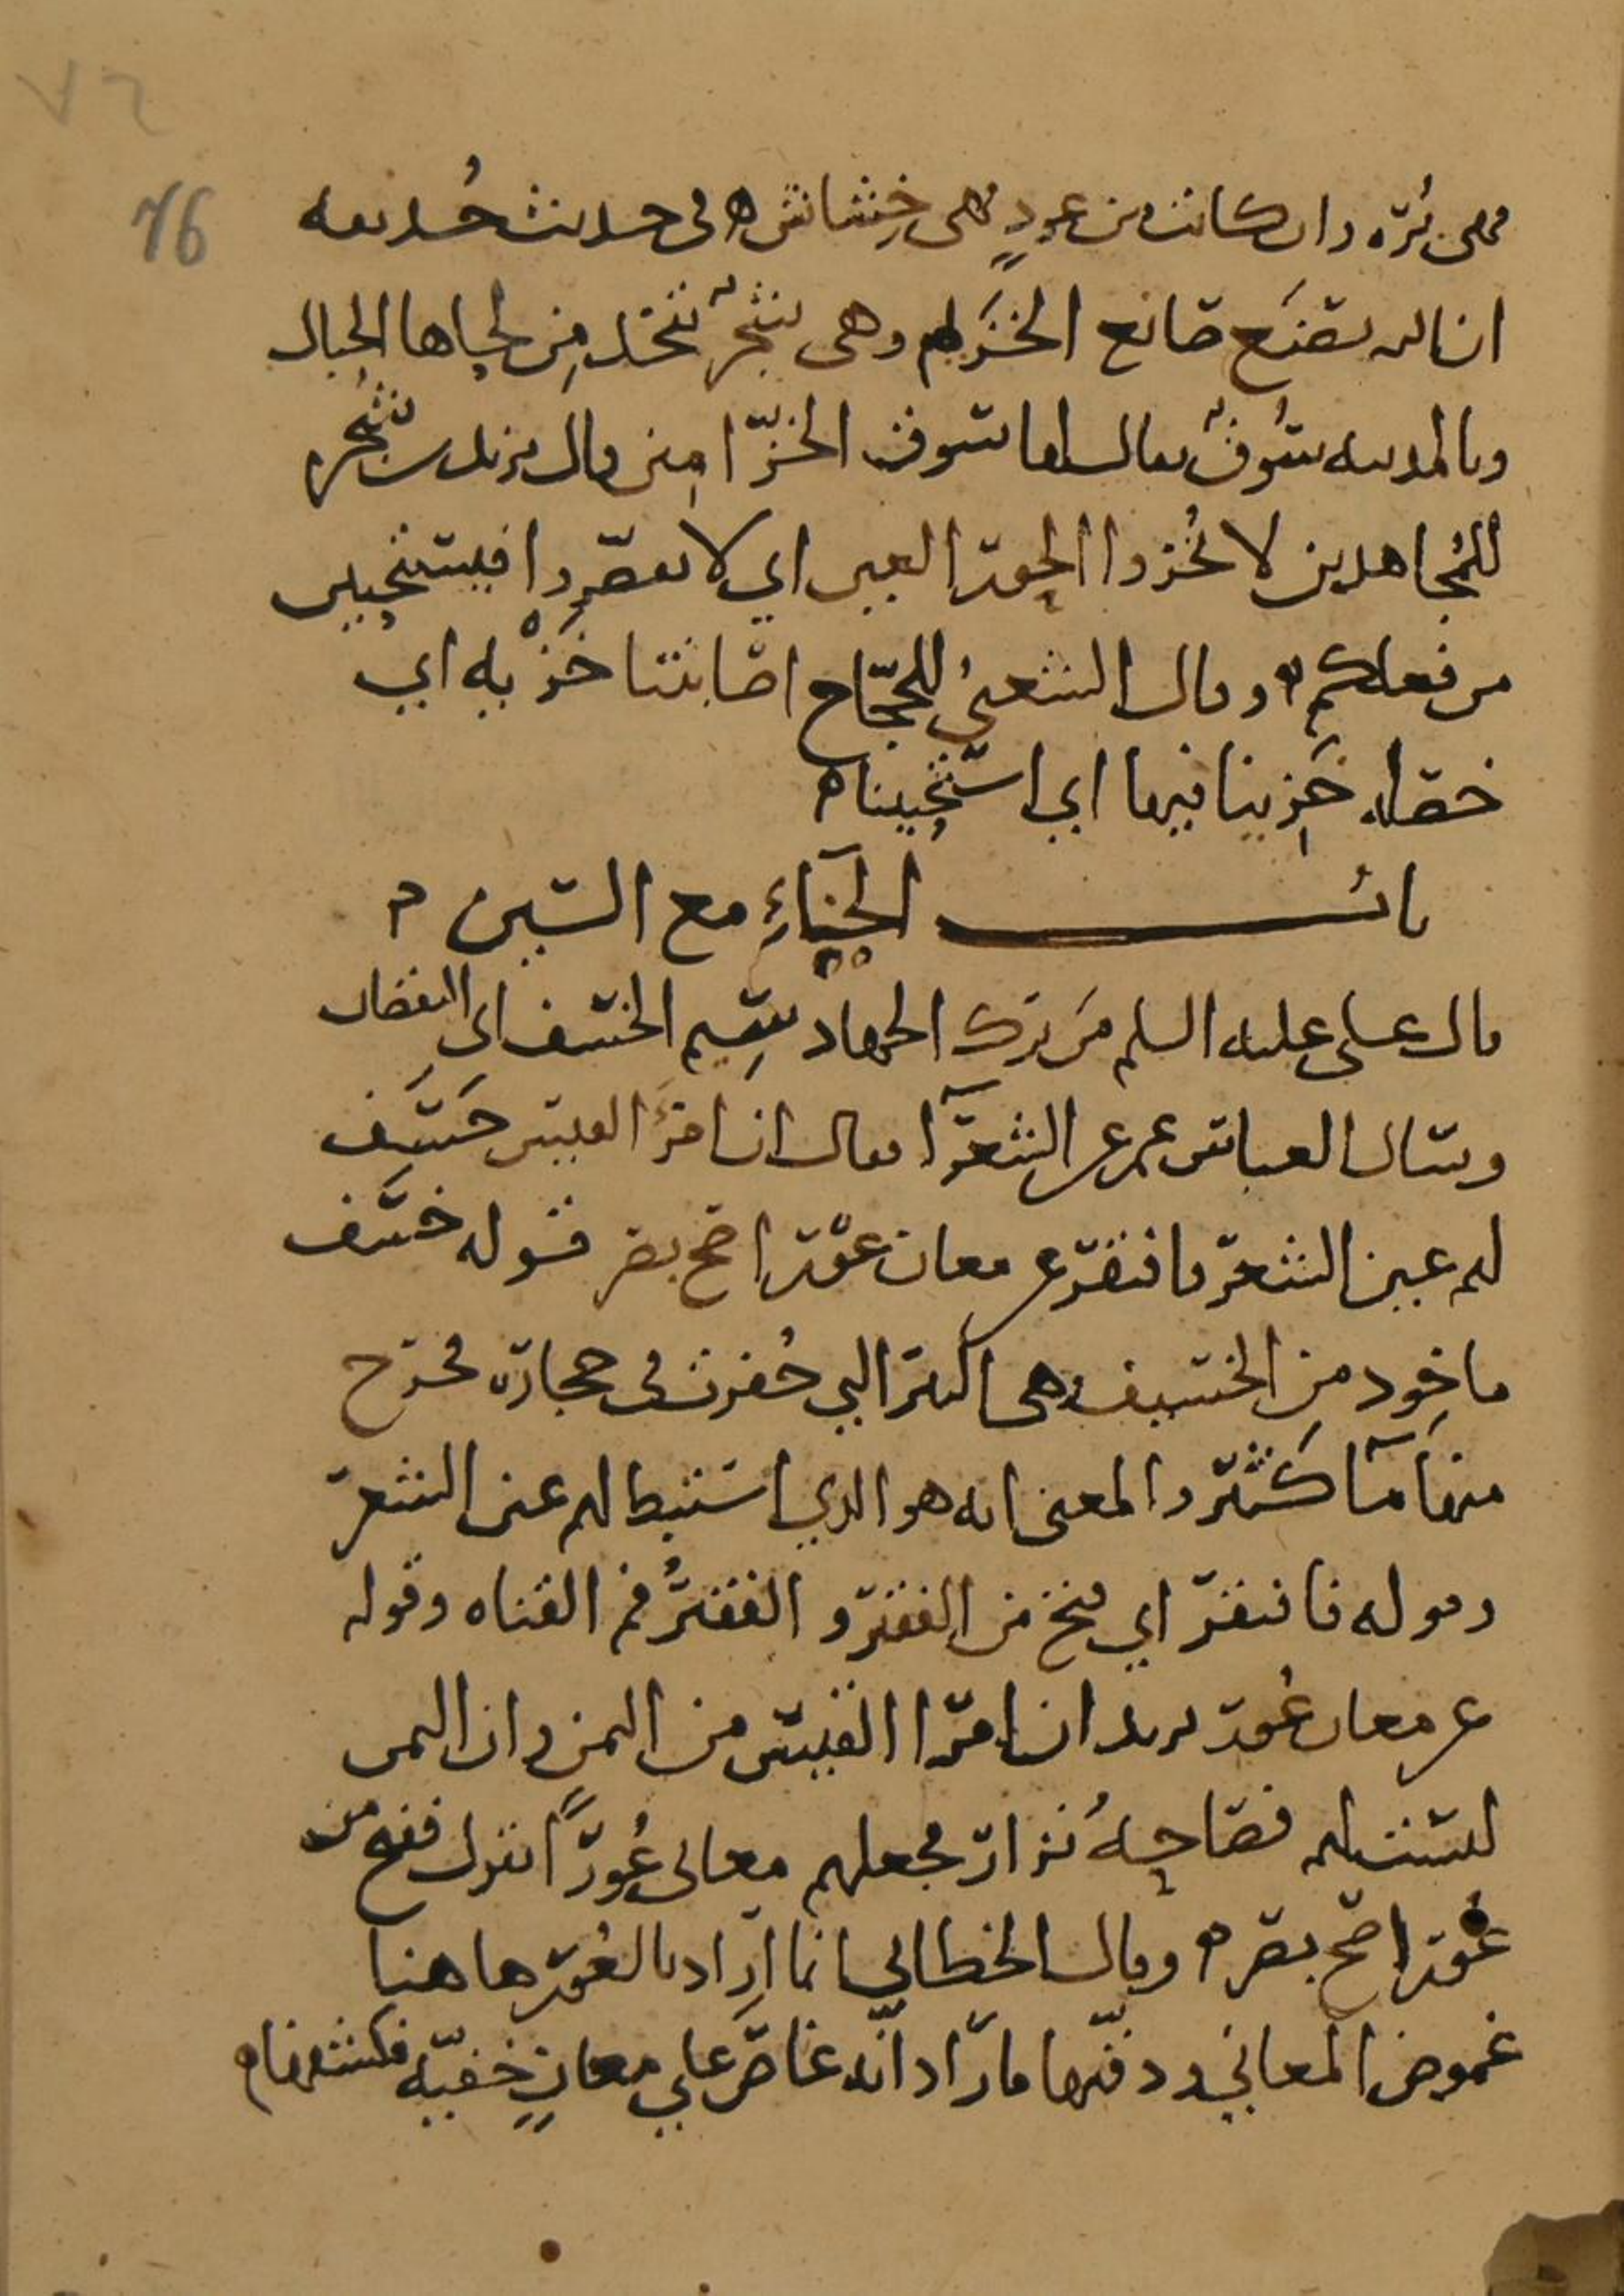 ٧٦
76
فهي بُرَه وان كانت من عودٍ فهي خِشاش ه في حديث حُذيفه
ان الله يصنَع صانع الخَزَم وهي شجرٌ تتخذ مِن لحاها الحبال
وبالمدينه سُوقٌ يقال لها سوق الخزّامين وقال يزيد بن شجره
للمُجاهدين لا تُخزوا الحور العين اي لا تقصّروا فيستحيين
من فعلكم ه وقال الشعبيُ للحجّاج اصابتنا خَزْيه اي
خصله خَزِينا فيها اي استحيينا ه
باب الخاءِ مع السين ه
قال علي عليه السلم مَن ترك الجهاد سِيم الخسف اي النقصان
وسال العباس عمر عن الشعرآ فقال ان امرَؤ القيس خَسَف
لهم عين الشعر فافتقر عن معان عور اصح بصر قوله خسَف
ماخوذ مِن الخسيف وهي البئر التي حُفرت في حجاره فخرج
منها مآ كَثير والمعنى انه هو الذي استنبط لهم عين الشعر
وقوله فافتقر اي فتح من الفقير و الفقيرُ فم القناه وقوله
عن معان عُور يريد ان امرا القيس من اليمن وان اليمن
ليست لهم فصاحهُ نزار فجعلهم معاني عُورًا يقول ففتح من
عُور اصح بصر ه وقال الخطابي انما اراد بالعُور ها هنا
غموض المعاني ودقّتها فاراد انّه غاص علي معانٍ خفيّه فكشفها ه